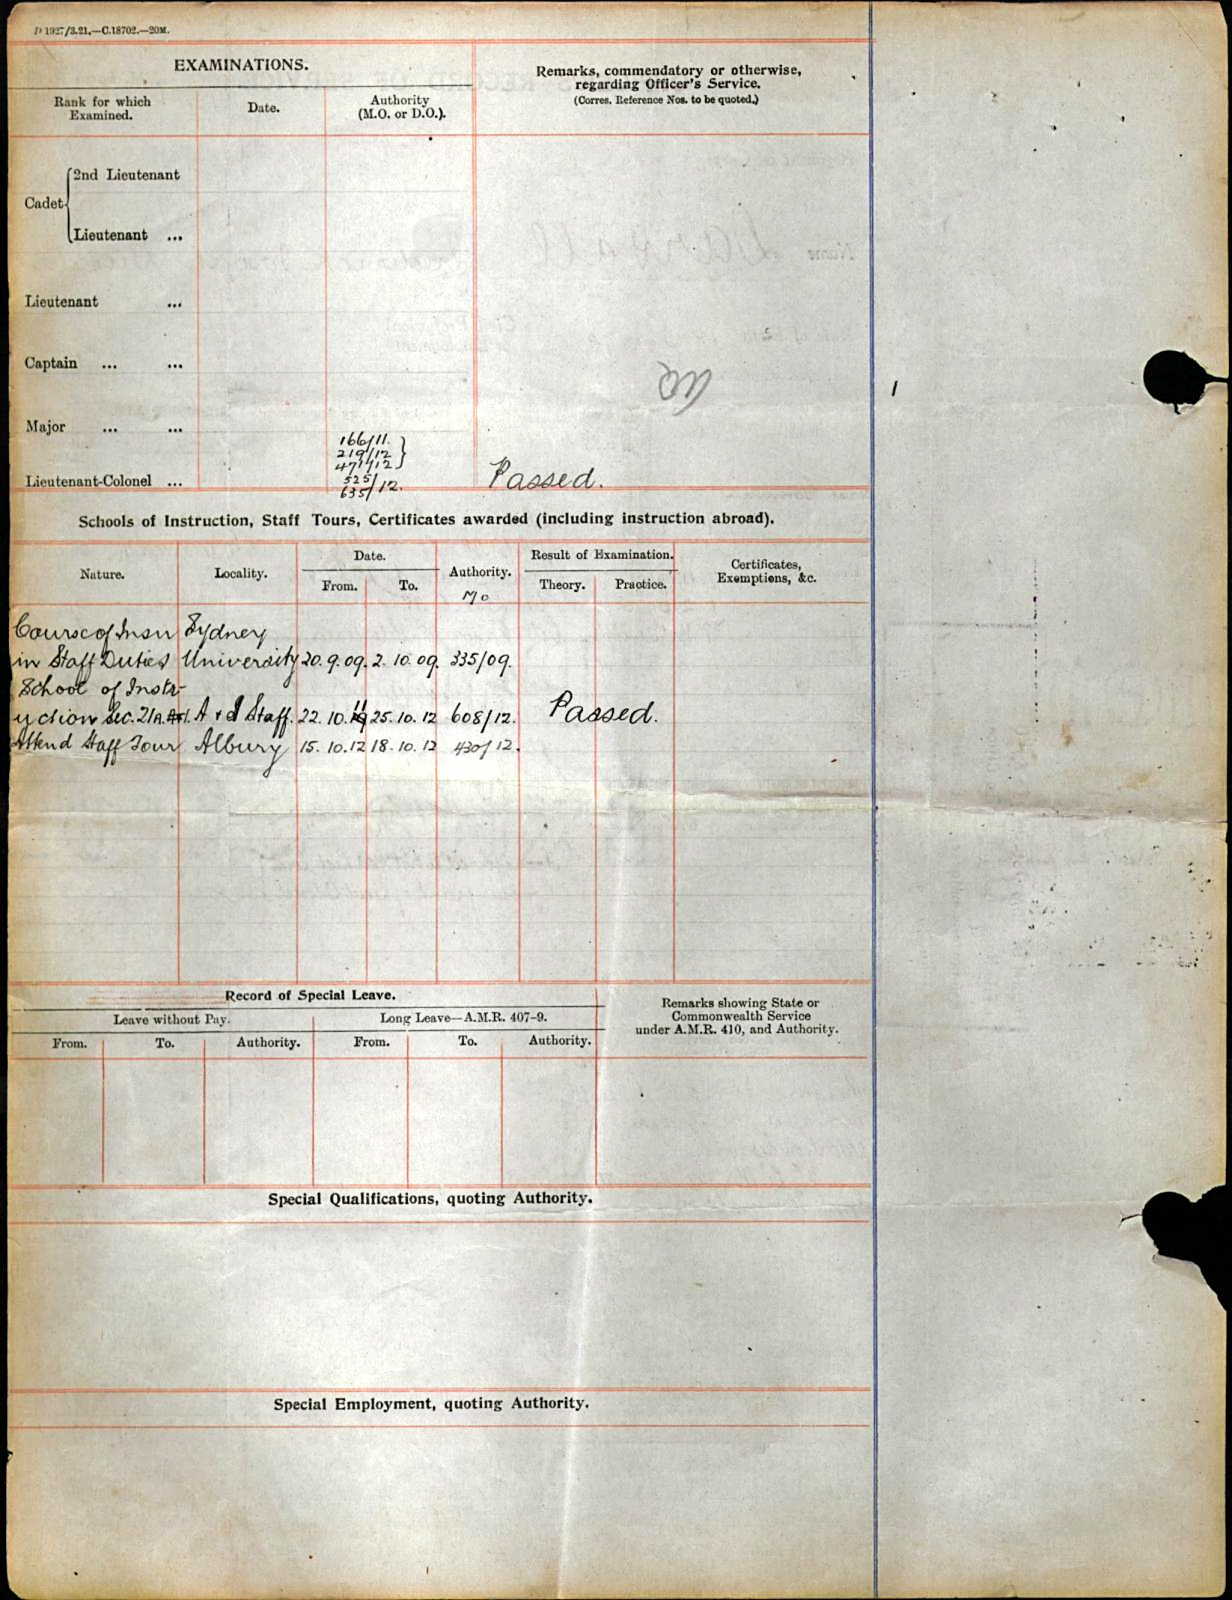 D 1927/3.21.—C.18702.—20M.
EXAMINATIONS.
Remarks, commendatory or otherwise,
regarding Officer's Service.
(Corres. Reference Nos. to be quoted.)
Rank for which
Examined.
Date.
Authority
(M.O. or D.O.).
Cadet
2nd Lieutenant
Lieutenant ...
Lieutenant ...
Captain ... ...
Major ... ...
166/11.
219/12
471/12
Lieutenant-Colonel ...
525/
635/12.
Passed.
Schools of Instruction, Staff Tours, Certificates awarded (including instruction abroad).
Nature.
Locality.
Date.
From.
To.
Authority.
MO
Result of Examination.
Theory.
Practice.
Certificates,
Exemptions, &c.
Course of Insn Sydney
in Staff Duties University 20.9.09. 2.10.09. 335/09.
School of Instr-
uction Sec. 21A. A & I Staff. 22.10. 25.10.12 608/12. Passed.
Attend Staff Tour Albury 15.10.12 18.10.12 430/12.
Record of Special Leave.
Leave without Pay.
Long Leave—A.M.R. 407-9.
From. To. Authority. From. To. Authority.
Remarks showing State or
Commonwealth Service
under A.M.R. 410, and Authority.
Special Qualifications, quoting Authority.
Special Employment, quoting Authority.